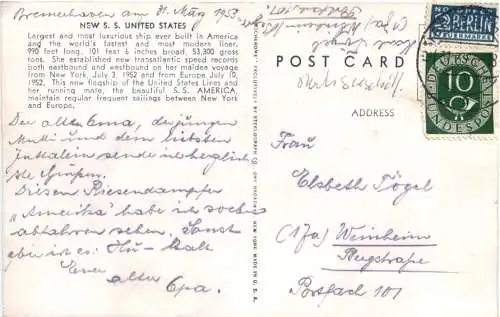 Bremerhaven am 31. März 1953.
NEW S. S. UNITED STATES
Largest and most luxurious ship ever built in America
and the world's fastest and most modern liner.
990 feet long. 101 feet 6 inches broad. 53,300 gross
tons. She established new transatlantic speed records
both eastbound and westbound on her maiden voyage
from New York, July 3, 1952 and from Europe July 10,
1952. This new flagship of the United States Lines and
her running mate, the beautiful S. S. AMERICA,
maintain regular frequent sailings between New York
and Europe.
Der alten Oma, der jungen
Mutti und dem liebsten
sende ich herzlich-
ste Grüße.
Diesen Riesendampfer
"Amerika" habe ich soeben
abfahren sehen. Sonst
aber ist es: Hu - kalt
Euer
alter Opa.
NEW YORK MADE IN U. S. A.
POST CARD
ADDRESS
NOTOPFER
2 BERLIN
STEUERMARKE
DEUTSCHE
BUNDESPOST
10
Frau
Elsbeth Tögel
(17a) Weinheim
Bergstraße
Postfach 101